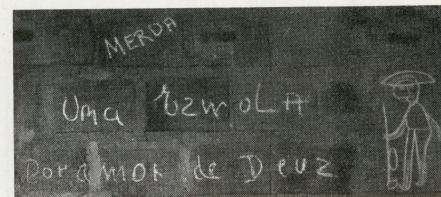 MERDA
Uma EzmoLA
Por amor de Deuz